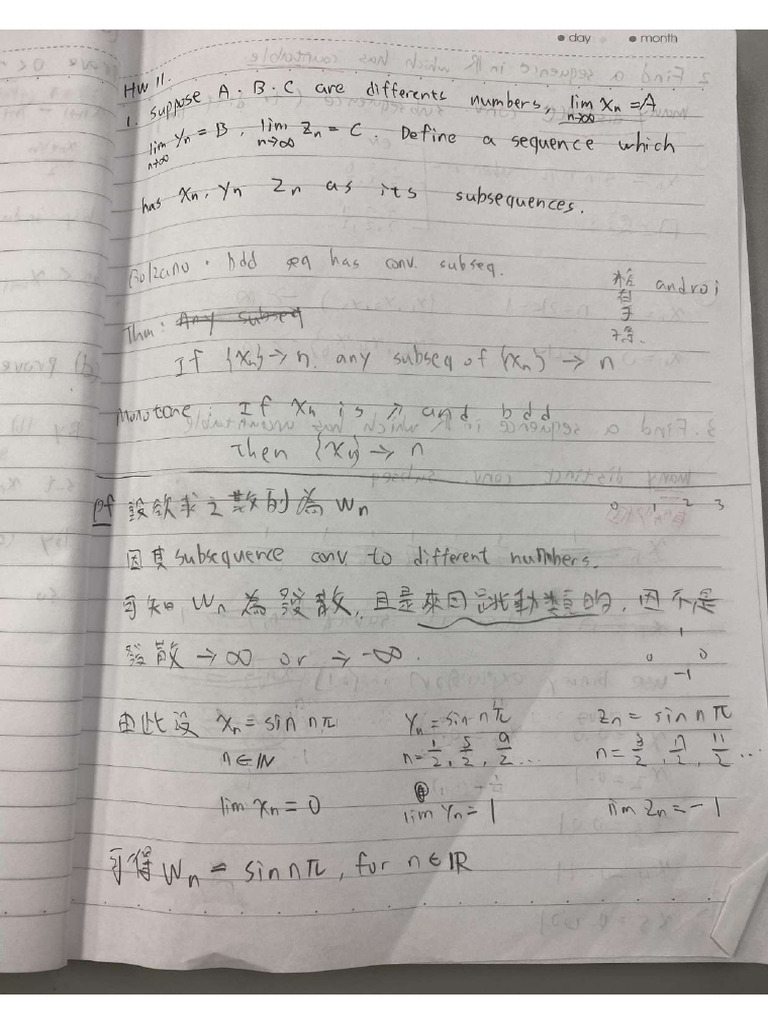 day month
HW 11.
1. suppose A. B. C are differents numbers, lim n→∞ Xn = A
lim n→∞ Yn = B, lim n→∞ Zn = C. Define a sequence which
has Xn, Yn Zn as its subsequences.
Bolzano. bdd seq has conv. subseq.
androi
Thm: Any subseq
If {Xn} → n. any subseq of {Xn} → n
Monotone: If Xn is ↗ and bdd
Then {Xn} → n
pf 設欲求之數列為 Wn
0 1 2 3
因其 subsequence conv. to different numbers.
可知 Wn 為發散, 且是來回跳動類的, 因不是
發散 → ∞ or → -∞.
1
0 0
-1
由此设 Xn = sin nπ Yn = sin nπ Zn = sin nπ
n∈ℕ n = 1/2, 5/2, 9/2 ... n = 3/2, 7/2, 11/2 ...
lim Xn = 0 lim Yn = 1 lim Zn = -1
可得 Wn = sin nπ, for n∈ℝ